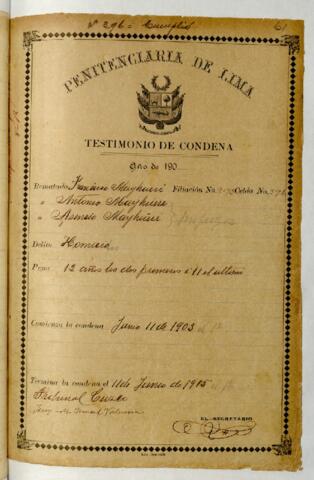 Nº 296 = Cumplió
61
PENITENCIARIA DE LIMA
TESTIMONIO DE CONDENA
Año de 190
Rematado Francisco Mayhuiri Filiación No. Celda No. 296
" Antonio Mayhuire
" Asencio Mayhuire
Delito Homicidio
Pena 12 años los dos primeros i 11 el último
Comienza la condena Junio 11 de 1903
Termina la condena el 11 de Junio de 1915
Tribunal Cuzco
Juez Ismael Valencia
EL SECRETARIO